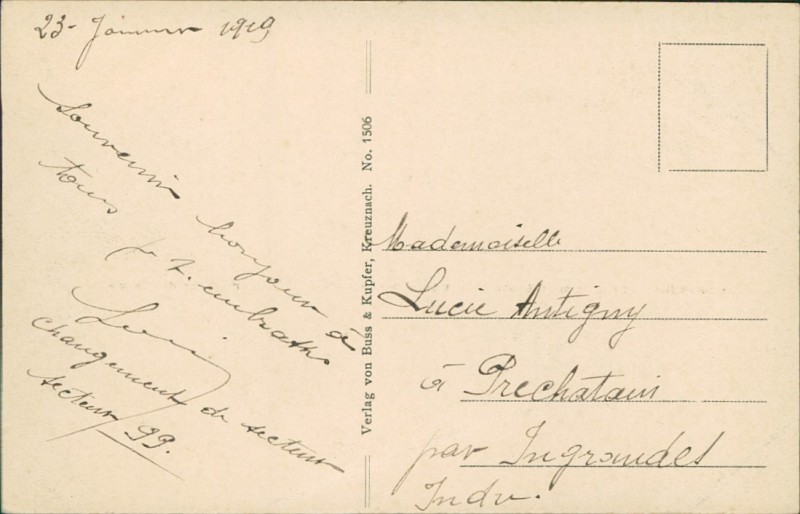 23 - Janvier 1919
Souvenir bonjour à
tous
Changement de secteur
secteur 99.
Verlag von Buss & Kupfer, Kreuznach. No. 1506
Mademoiselle
Lucie Antigny
à Prechatain
par Ingrandes
Indre.